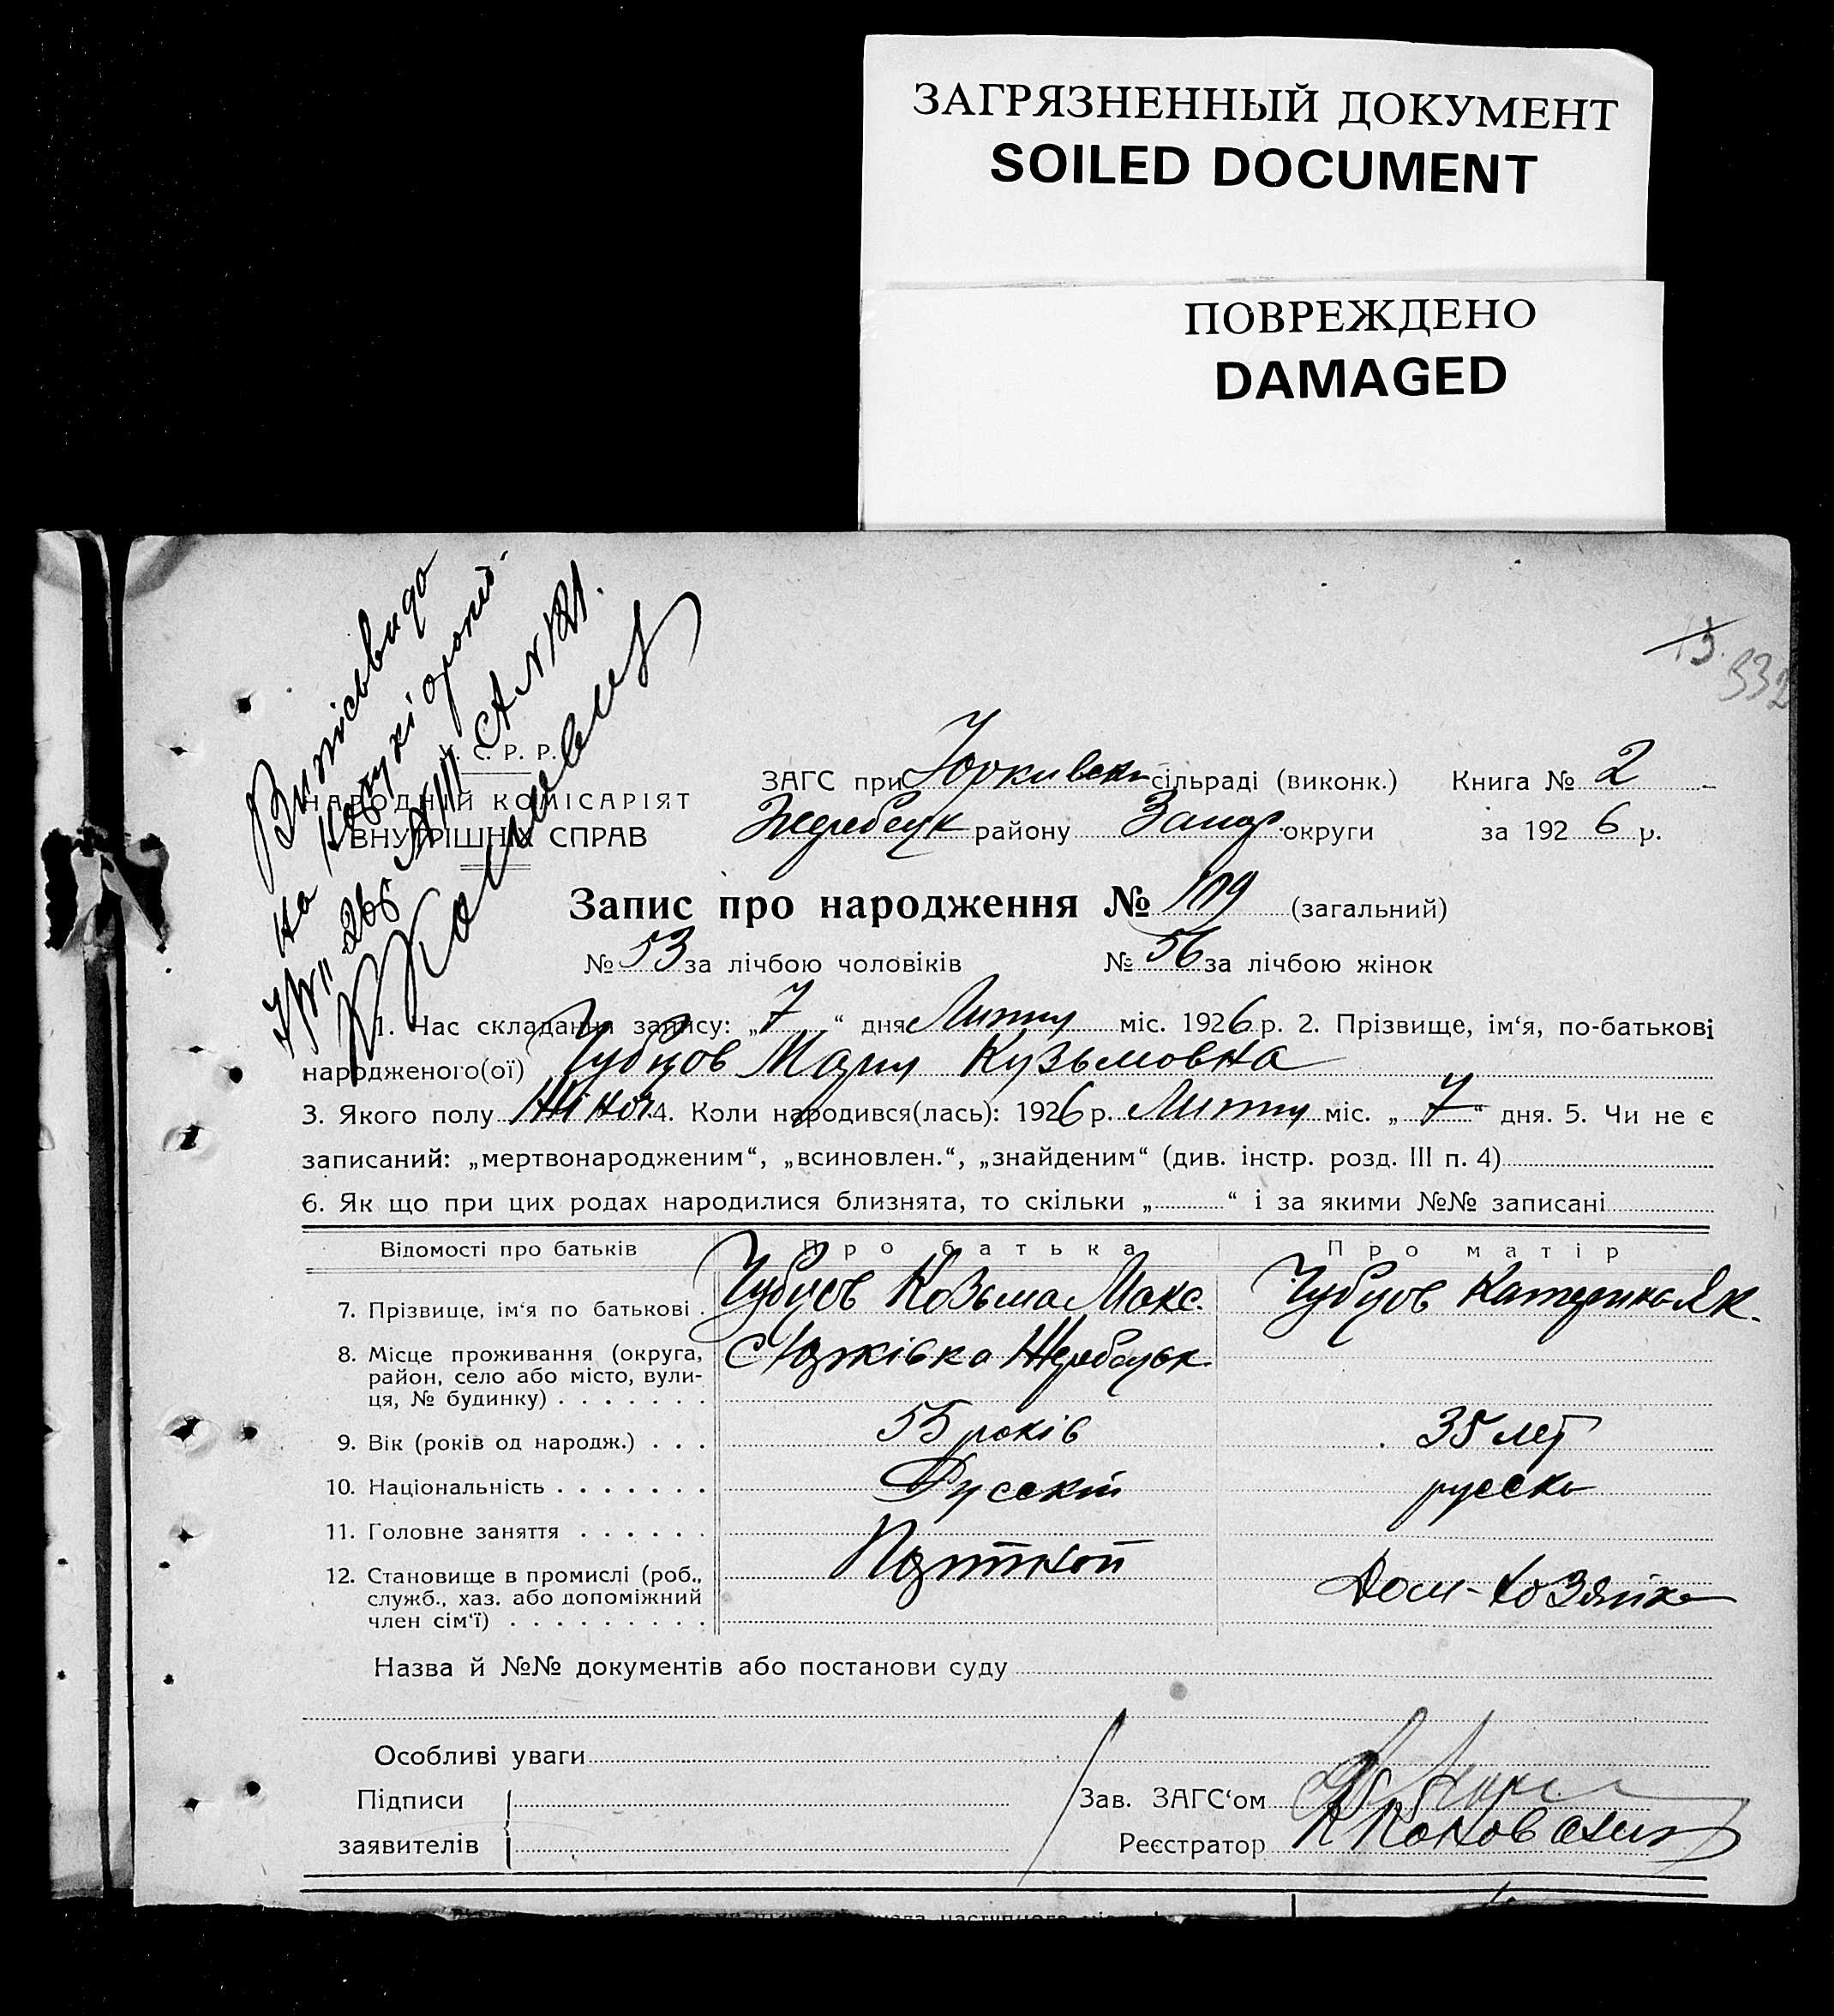 ЗАГРЯЗНЕННЫЙ ДОКУМЕНТ
SOILED DOCUMENT
ПОВРЕЖДЕНО
DAMAGED
13.
332
С. Р. Р.
НАРОДНІЙ КОМІСАРІЯТ
ВНУТРІШНІХ СПРАВ
ЗАГС при Юрківськ сільраді (виконк.) Книга № 2
Жеребецьк району Запор. округи за 1926 р.
Запис про народження № 109 (загальний)
№ 53 за лічбою чоловіків № 56 за лічбою жінок
1. Час складання запису: „7“ дня Липня міс. 1926 р. 2. Прізвище, ім‘я, по-батькові
народженого(ої) Чубцов Мария Кузьмовна
3. Якого полу Жіноч. 4. Коли народився(лась): 1926 р. Липня міс. „7“ дня. 5. Чи не є
записаний: „мертвонародженим“, „всиновлен.“, „знайденим“ (див. інстр. розд. III п. 4)
6. Як що при цих родах народилися близнята, то скільки „ “ і за якими №№ записані
Відомості про батьків Про батька Про матір
7. Прізвище, ім‘я по батькові . Чубцов Козьма Макс. Чубцов Катерина Як.
8. Місце проживання (округа, район, село або місто, вулиця, № будинку) . . . . . . . с Юрківка Жеребецьк.
9. Вік (років од народж.) . . . 55 років 35 лет
10. Національність . . . . . . . Русский русска
11. Головне заняття . . . . . .
12. Становище в промислі (роб., служб., хаз. або допоміжний член сім‘ї) . . . . . . . . . Дом-хозяйка
Назва й №№ документів або постанови суду
Особливі уваги
Підписи
заявителів
Зав. ЗАГС‘ом
Реєстратор К Коновалих